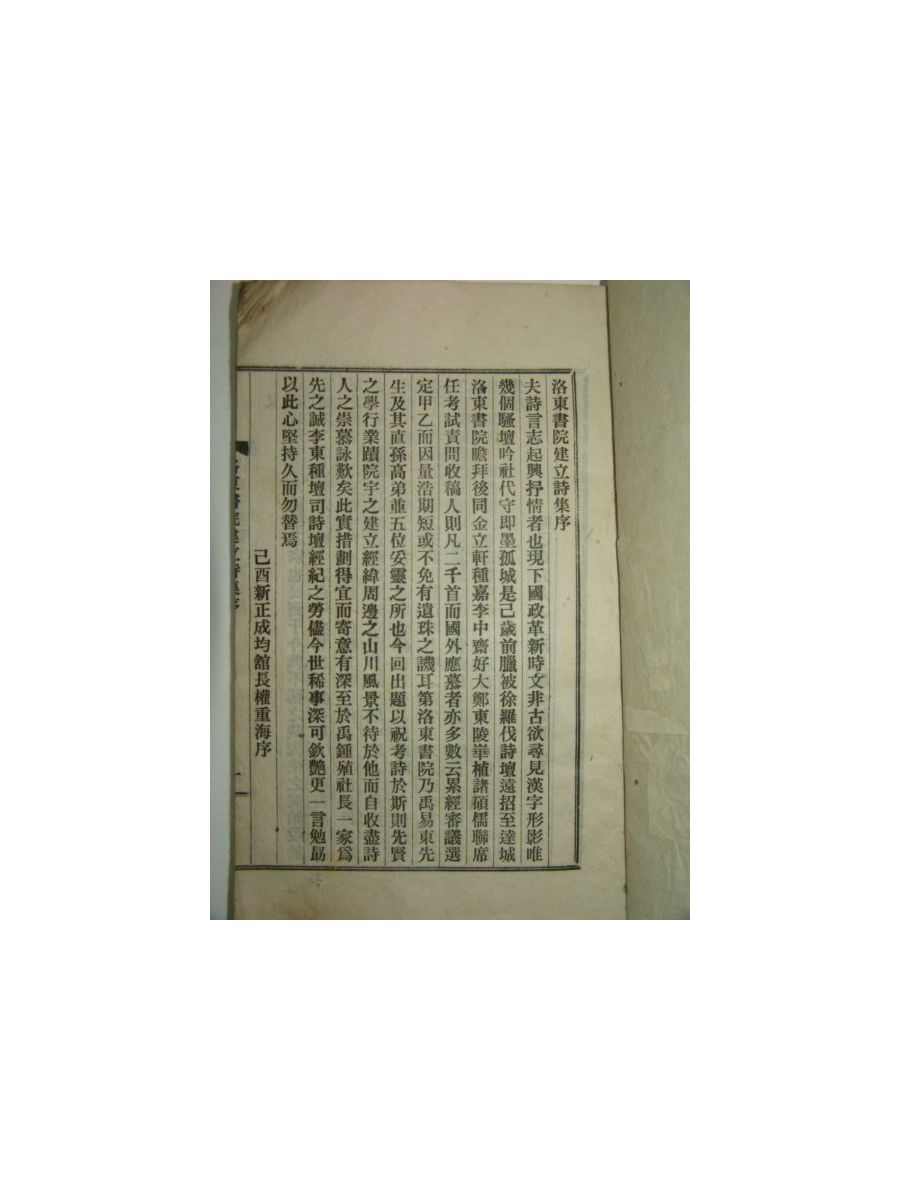 洛東書院建立詩集序
夫詩言志起興抒情者也現下國政革新時文非古欲尋見漢字形影唯
幾個騷壇吟社代守即墨孤城是己歲前臘被徐羅伐詩壇遠招至達城
洛東書院瞻拜後同金立軒種嘉李中齋好大鄭東陵畢植諸碩儒聯席
任考試責問收稿人則凡二千首而國外應募者亦多數云累經審議選
定甲乙而因量浩期短或不免有遺珠之譏耳第洛東書院乃禹易東先
生及其直孫高弟並五位妥靈之所也今回出題以祝考詩於斯則先賢
之學行業蹟院宇之建立經緯周邊之山川風景不待於他而自收盡詩
人之崇慕詠歎矣此實措劃得宜而寄意有深至於禹鍾殖社長一家爲
先之誠李東種壇司詩壇經紀之勞儘今世稀事深可欽艶更一言勉勗
以此心堅持久而勿替焉
己酉新正成均舘長權重海序